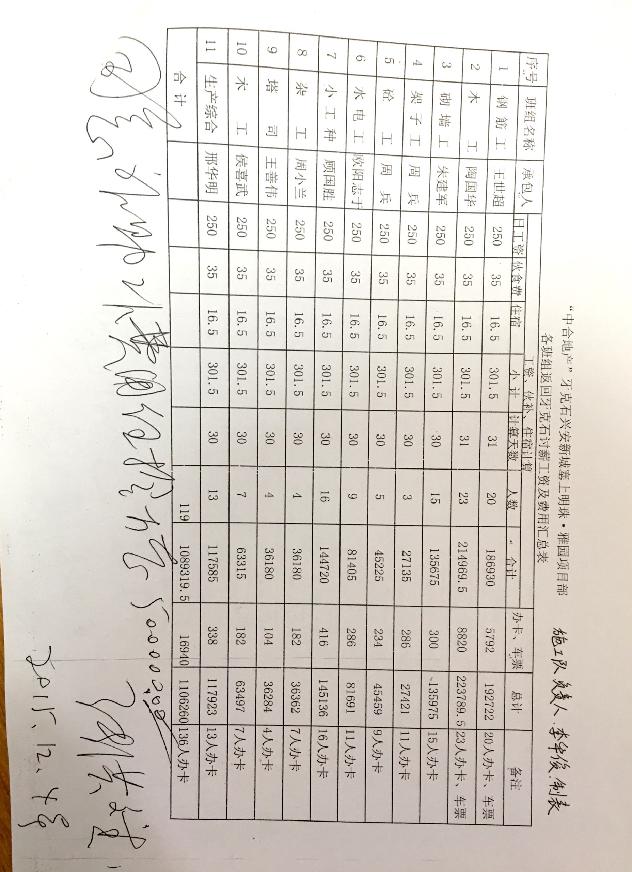 “中合地产”牙克石兴安新城嘉上明珠·雅园项目部
各班组返回牙克石讨薪工资及费用汇总表
施工队负责人 李华俊 制表
序号 班组名称 承包人 工资、伙补、住宿计算 办卡、车票 总计 备注
日工资 伙食费 住宿 小计 计算天数 人数 合计
1 钢筋工 王世超 250 35 16.5 301.5 31 20 186930 5792 192722 20人办卡、车票
2 木工 陶国华 250 35 16.5 301.5 31 23 214969.5 8820 223789.5 23人办卡、车票
3 砌墙工 朱建军 250 35 16.5 301.5 30 15 135675 300 135975 15人办卡
4 架子工 周兵 250 35 16.5 301.5 30 3 27135 286 27421 11人办卡
5 砼工 周兵 250 35 16.5 301.5 30 5 45225 234 45459 9人办卡
6 水电工 欧阳志于 250 35 16.5 301.5 30 9 81405 286 81691 11人办卡
7 小工种 顾国胜 250 35 16.5 301.5 30 16 144720 416 145136 16人办卡
8 杂工 周小兰 250 35 16.5 301.5 30 4 36180 182 36362 7人办卡
9 塔司 王善伟 250 35 16.5 301.5 30 4 36180 104 36284 4人办卡
10 木工 侯喜武 250 35 16.5 301.5 30 7 63315 182 63497 7人办卡
11 生产综合 邢华明 250 35 16.5 301.5 30 13 117585 338 117923 13人办卡
合计 119 1089319.5 16940 1106260 136人办卡
500000.00
2015.12.4号